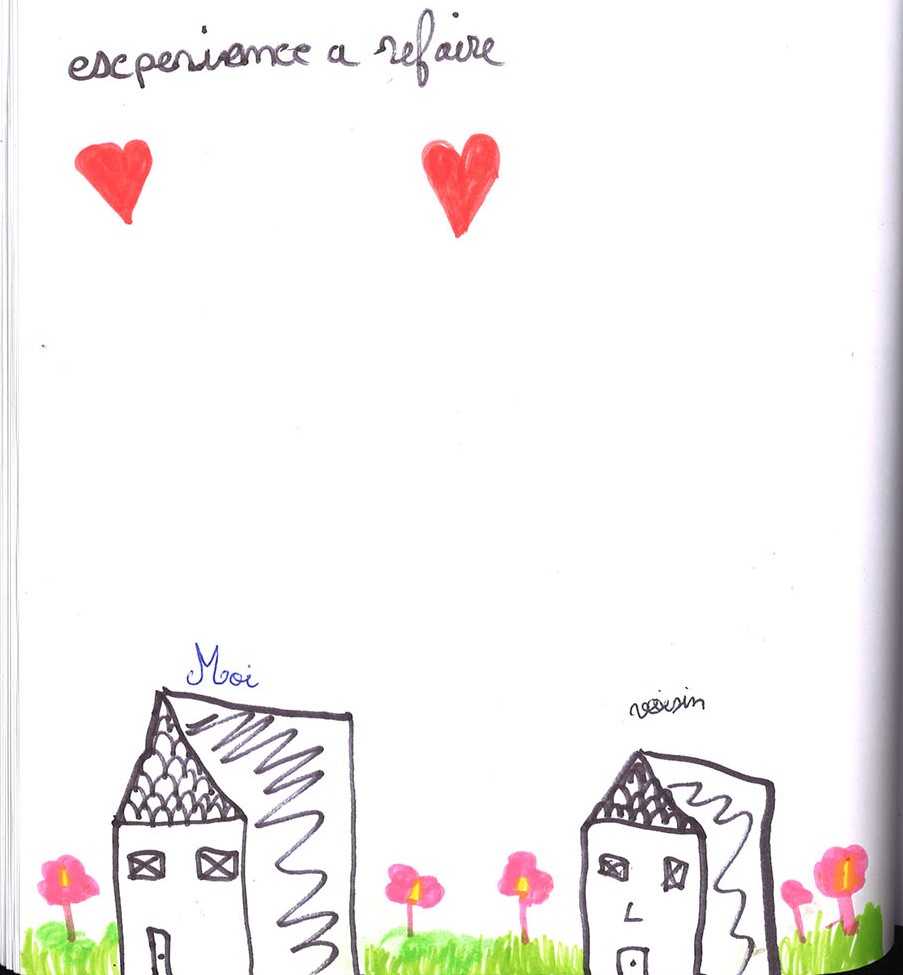 escperiance a refaire
Moi
voisin